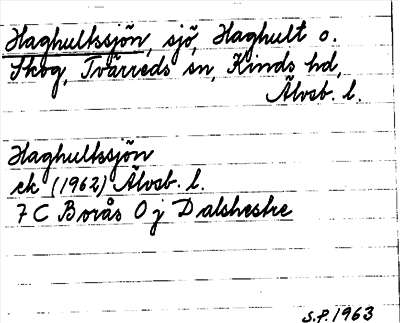 Haghultssjön, sjö, Haghult o.
Skog, Tvärreds sn, Kinds hd,
Älvsb. l.
Haghultssjön
ek (1962) Älvsb. l.
7 C Borås O j Dalshestre
S.P. 1963